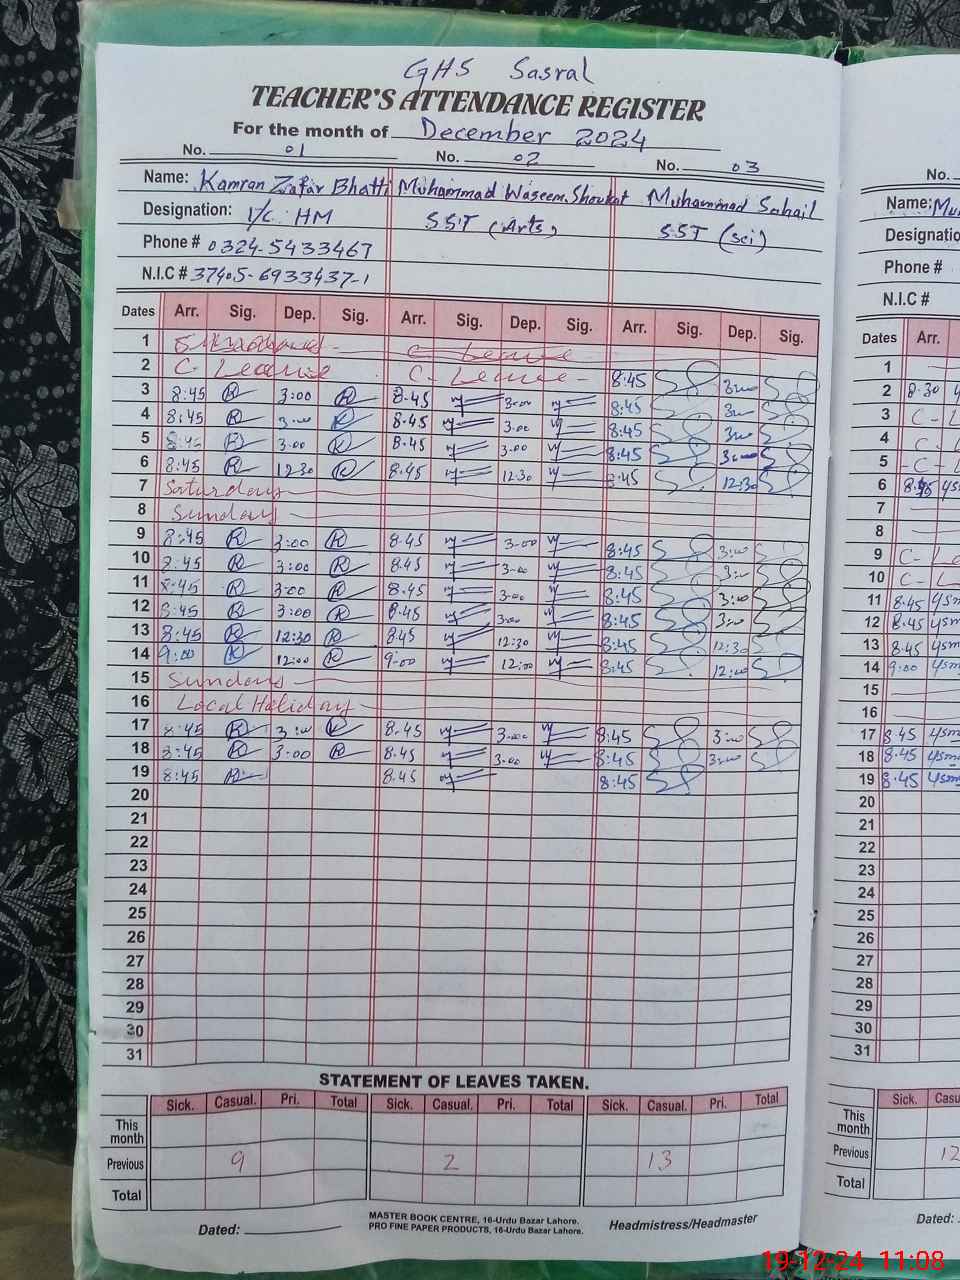 GHS Sasral
TEACHER'S ATTENDANCE REGISTER
For the month of December 2024
No. 01 No. 02 No. 03 No.
Name: Kamran Zafar Bhatti Muhammad Waseem Shoukat Muhammad Sohail Name: Mu
Designation: I/C HM SST (Arts) SST (sci) Designatio
Phone # 0324-5433467 Phone #
N.I.C # 37405-6933437-1 N.I.C #
Dates Arr. Sig. Dep. Sig. Arr. Sig. Dep. Sig. Arr. Sig. Dep. Sig. Dates Arr.
1 1
2 C- Leave C- Leave 8:45 3:00 2 8:30
3 8:45 3:00 8.45 3.00 8:45 3:00 3 C-
4 8:45 3:00 8.45 3.00 8:45 3:00 4 C-
5 8:45 3:00 8.45 3.00 8:45 3:00 5 C-
6 8:45 12:30 8.45 12:30 8:45 12:30 6 8.45
7 Saturday 7
8 Sunday 8
9 8:45 3:00 8.45 3.00 8:45 3:00 9 C-
10 8:45 3:00 8.45 3.00 8:45 3:00 10 C-
11 8:45 3:00 8.45 3.00 8:45 3:00 11 8.45
12 8:45 3:00 8.45 3.00 8:45 3:00 12 8.45
13 8:45 12:30 8.45 12:30 8:45 12:30 13 8.45
14 9:00 12:00 9.00 12:00 8:45 12:00 14 9:00
15 Sunday 15
16 Local Holiday 16
17 8:45 3:00 8.45 3.00 8:45 3:00 17 8.45
18 8:45 3:00 8.45 3.00 8:45 3:00 18 8.45
19 8:45 8.45 8:45 19 8.45
20 20
21 21
22 22
23 23
24 24
25 25
26 26
27 27
28 28
29 29
30 30
31 31
STATEMENT OF LEAVES TAKEN.
Sick. Casual. Pri. Total Sick. Casual. Pri. Total Sick. Casual. Pri. Total Sick. Casu
This month This month
Previous 9 2 13 Previous 12
Total Total
Dated: MASTER BOOK CENTRE, 16-Urdu Bazar Lahore. Headmistress/Headmaster Dated:
PRO FINE PAPER PRODUCTS, 16-Urdu Bazar Lahore.
19-12-24 11:08